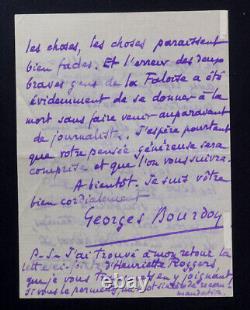 les choses, les choses paraissent
bien fades. Et l'erreur des deux
braves gens de la Faloise a été
évidemment de se donner à la
mort sans faire venir auparavant
de journaliste. J'espère pourtant
que votre pensée généreuse sera
comprise et que l'on vous suivra.
A bientôt. Je suis vôtre
bien cordialement
Georges Bourdon
P.S. J'ai trouvé à mon retour la
lettre ci-jointe d'Henriette Roggers
que je vous transmets en y joignant
si vous le permettez,
mandataire.
ebay